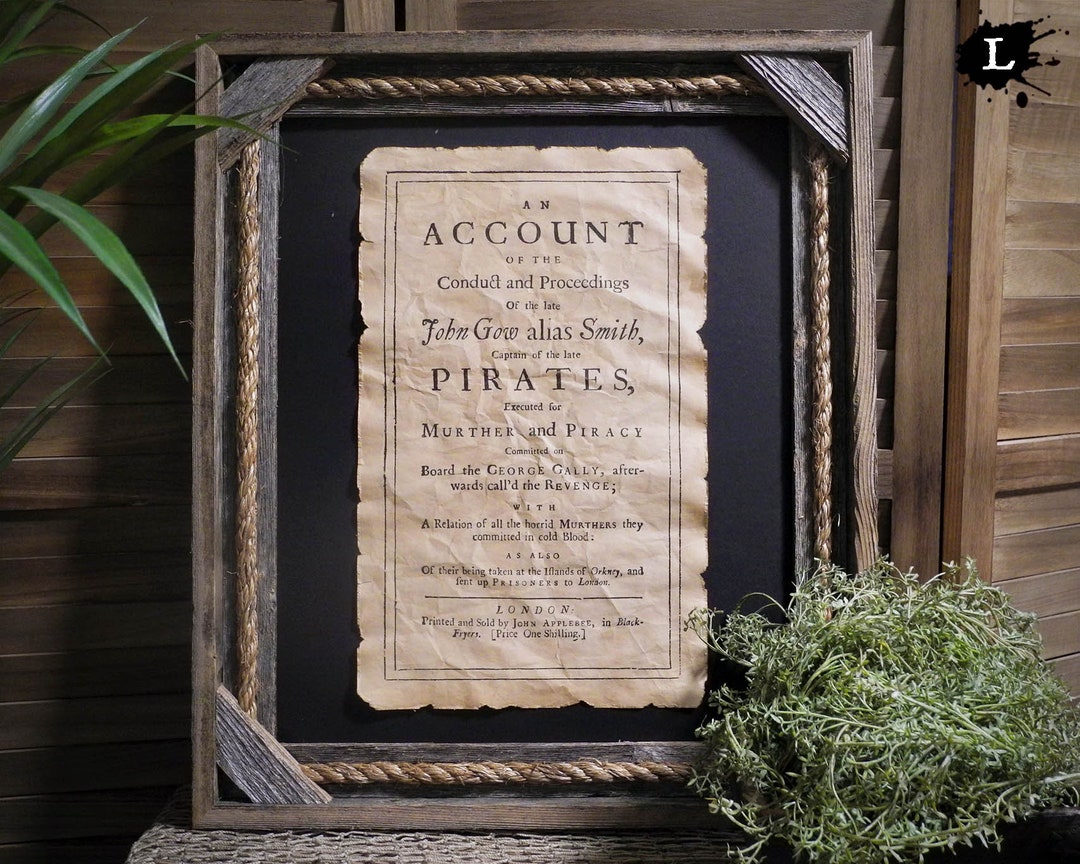 L
AN
ACCOUNT
OF THE
Conduct and Proceedings
Of the late
John Gow alias Smith,
Captain of the late
PIRATES,
Executed for
MURTHER and PIRACY
Committed on
Board the GEORGE GALLY, after-
wards call'd the REVENGE;
WITH
A Relation of all the horrid MURTHERS they
committed in cold Blood:
AS ALSO
Of their being taken at the Iſlands of Orkney, and
ſent up PRISONERS to London.
LONDON:
Printed and Sold by JOHN APPLEBEE, in Black-
Fryers. [Price One Shilling.]